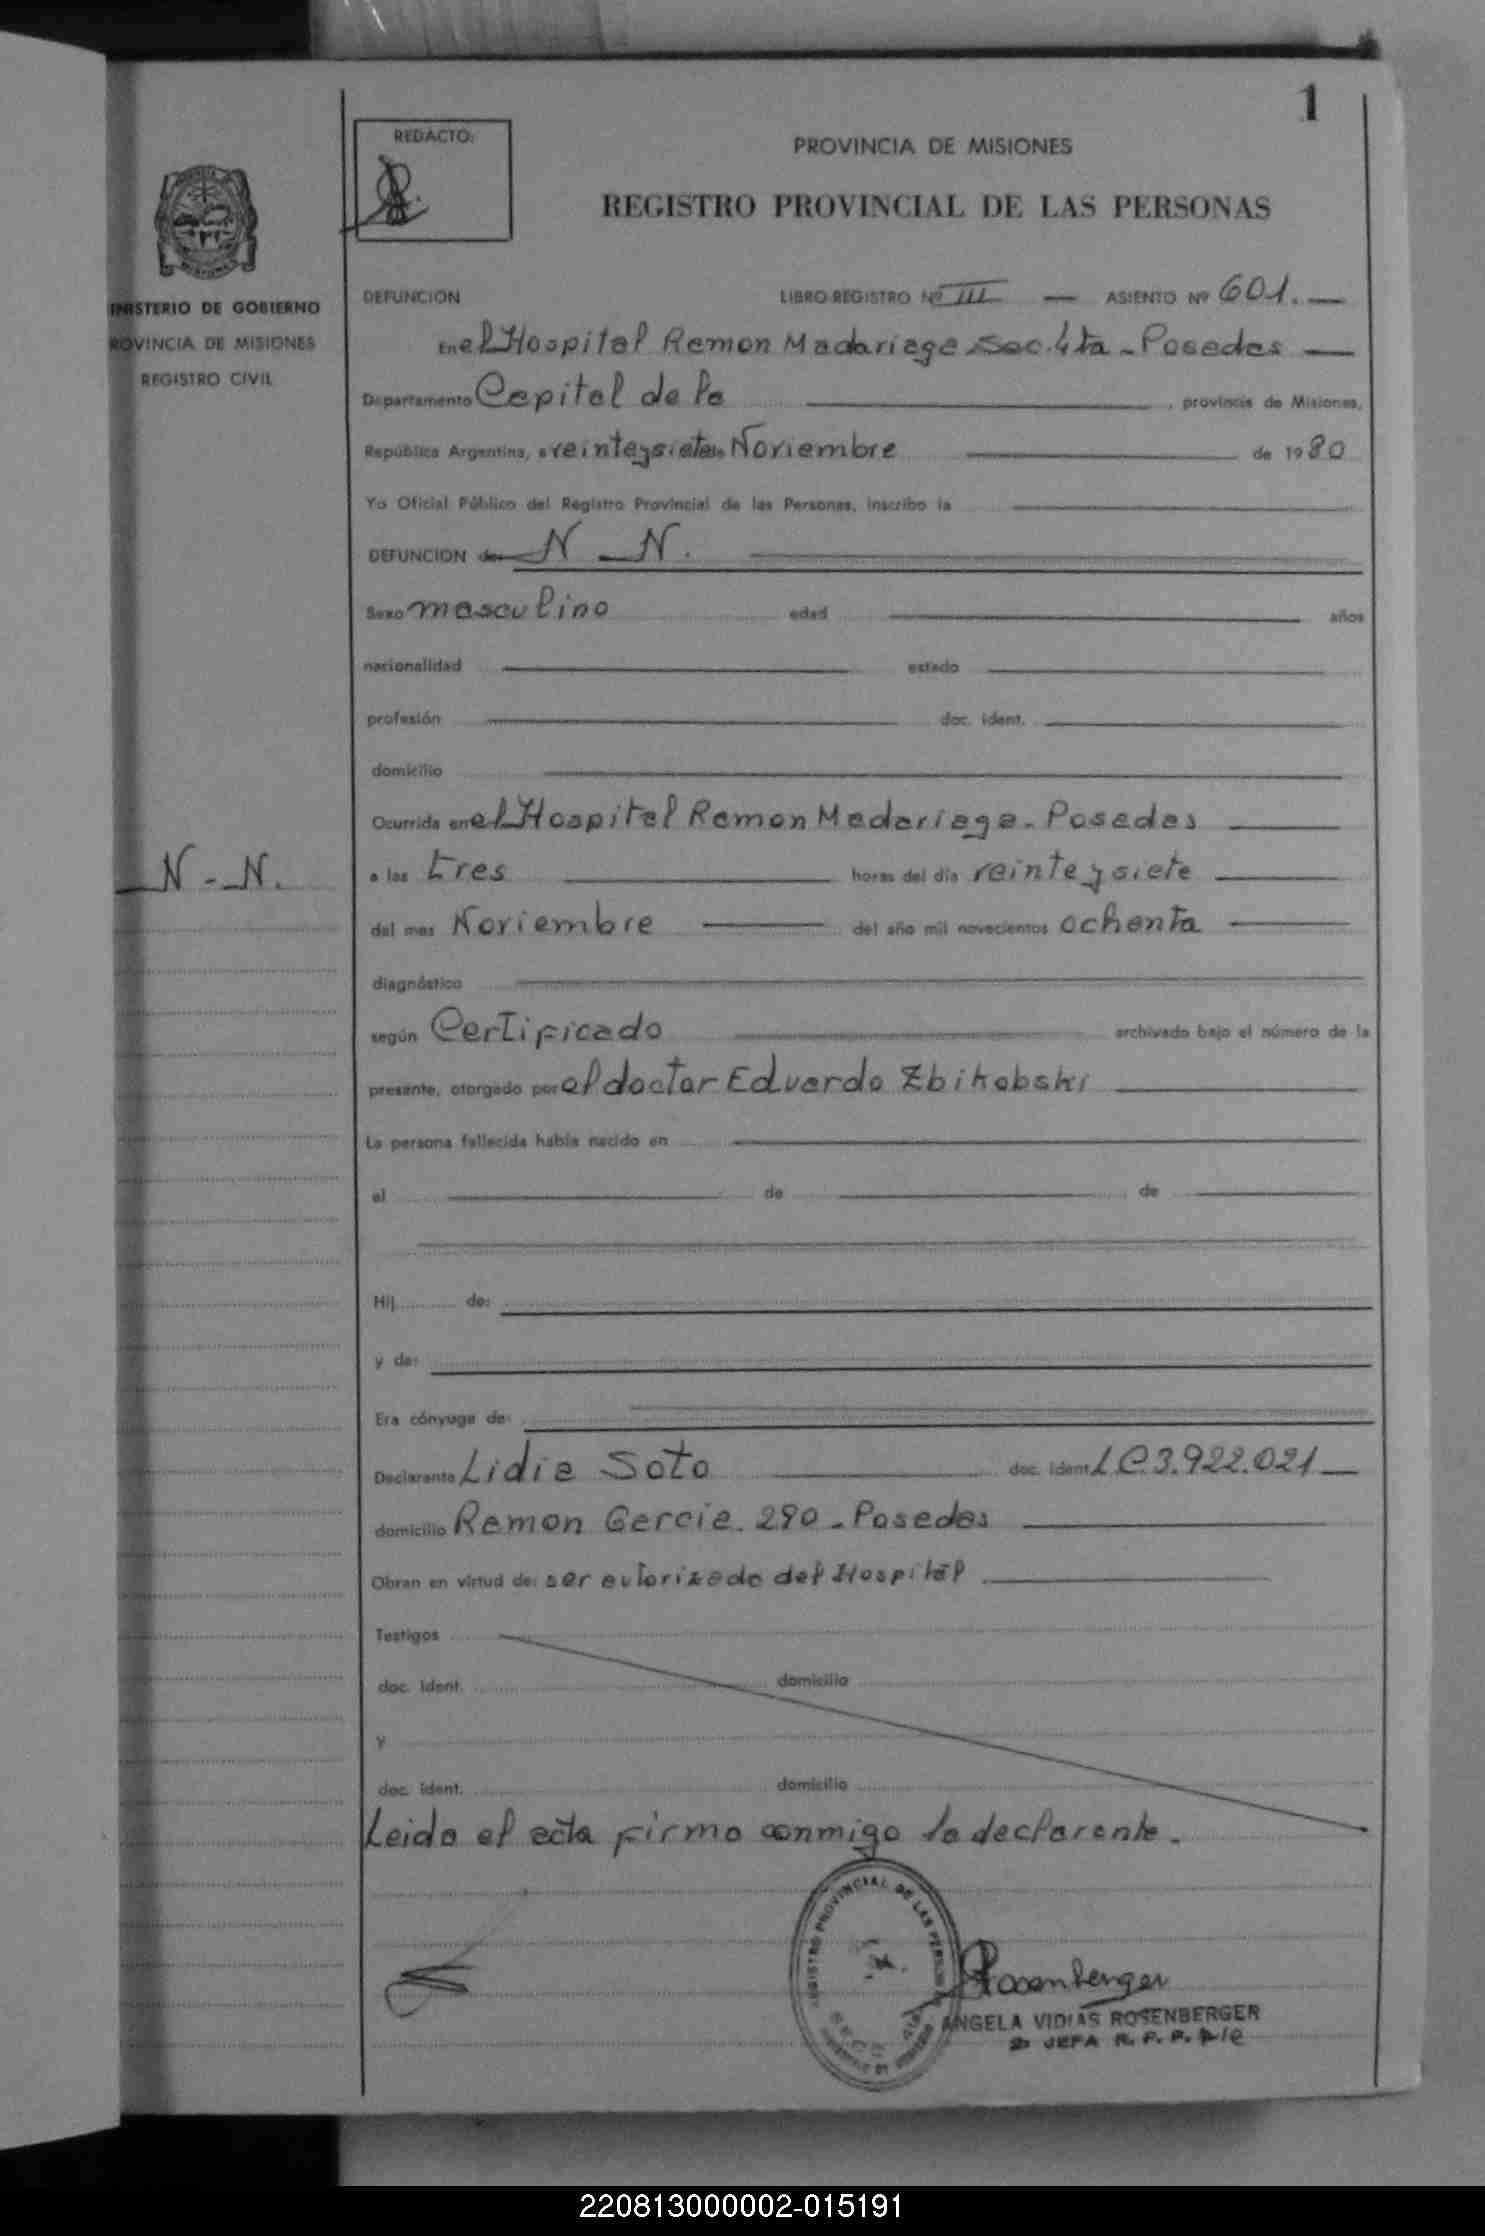 1
REDACTO:
PROVINCIA DE MISIONES
REGISTRO PROVINCIAL DE LAS PERSONAS
MINISTERIO DE GOBIERNO
PROVINCIA DE MISIONES
REGISTRO CIVIL
DEFUNCION LIBRO REGISTRO Nº III — ASIENTO Nº 601. —
En el Hospital Ramon Madariaga Sec. 4ta - Posadas —
Departamento Capital de la , provincia de Misiones,
República Argentina, a veinteysiete de Noviembre de 1980
Yo Oficial Público del Registro Provincial de las Personas, inscribo la
DEFUNCION de N _ N.
Sexo masculino edad años
nacionalidad estado
profesión doc. ident.
domicilio
Ocurrida en el Hospital Ramon Madariaga - Posadas
N - N.
a las tres horas del día veinteysiete
del mes Noviembre del año mil novecientos ochenta
diagnóstico
según Certificado archivado bajo el número de la
presente, otorgado por el doctor Eduardo Zbikobski
La persona fallecida había nacido en
el de de
Hij de:
y de:
Era cónyuge de:
Declarante Lidia Soto doc. ident. L.C. 3.922.021
domicilio Ramon Garcia. 290 - Posadas
Obran en virtud de: ser autorizado del Hospital
Testigos
doc. ident. domicilio
y
doc. ident. domicilio
Leida el acta firma conmigo la declarante.
REGISTRO PROVINCIAL DE LAS PERSONAS
Rosenberger
ANGELA VIDIAS ROSENBERGER
JEFA R. P. P.
220813000002-015191